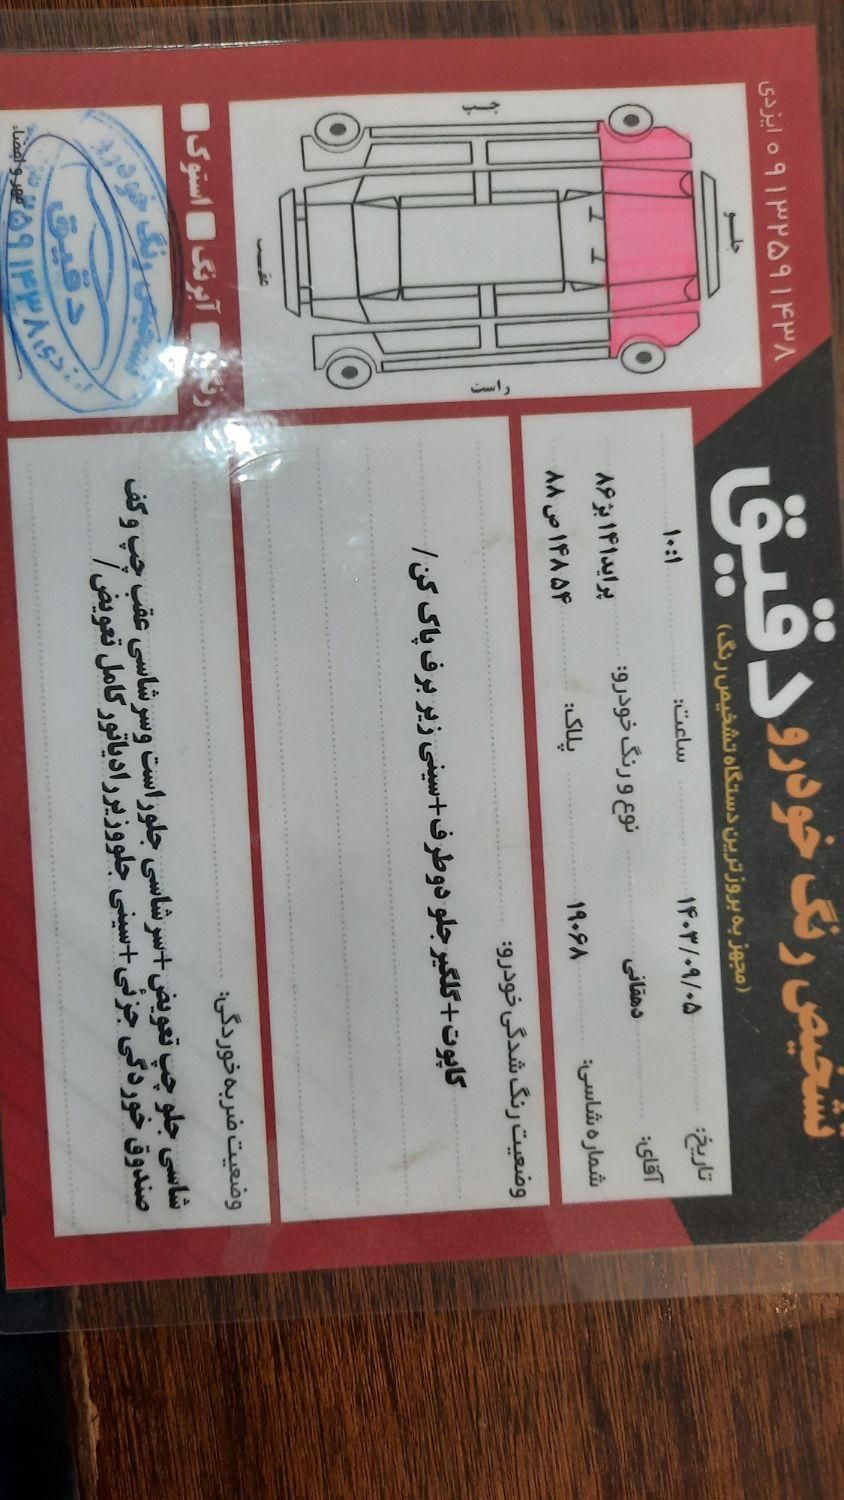 تشخیص رنگ خودرو دقیق
(مجهز به بروزترین دستگاه تشخیص رنگ)
۰۹۱۳۲۵۹۱۴۳۸ ایزدی
تاریخ: ۱۴۰۳/۰۹/۰۵ ساعت: ۱۰:۱
آقای: دهقانی نوع و رنگ خودرو: پراید۱۴۱ بژ ۸۶
شماره شاسی: ۱۹۰۶۸ پلاک: ۵۴ ۱۴۸ص ۸۸
جلو
چپ
راست
عقب
وضعیت رنگ شدگی خودرو:
کاپوت+گلگیر جلو دو طرف+سینی زیر برف پاک کن/
وضعیت ضربه خوردگی:
شاسی جلو چپ تعویض+سرشاسی جلو راست و سرشاسی عقب چپ و کف
صندوق خوردگی جزئی+سینی جلو و زیر رادیاتور کامل تعویض/
رنگ آبرنگ استوک
مهر و امضاء
تشخیص رنگ خودرو
دقیق